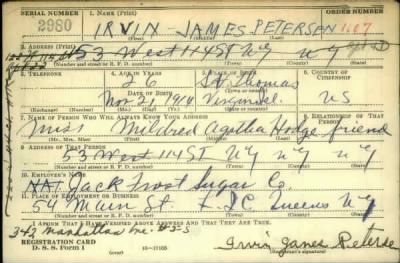 SERIAL NUMBER 1. NAME (Print) ORDER NUMBER
2980 IRVIN JAMES PETERSEN 1107
(First) (Middle) (Last)
2. ADDRESS (Print)
53 West 114 ST NY NY
(Number and street or R. F. D. number) (Town) (County) (State)
3. TELEPHONE 4. AGE IN YEARS 5. PLACE OF BIRTH 6. COUNTRY OF CITIZENSHIP
26 St Thomas
DATE OF BIRTH
Nov 21 1914 US
(Exchange) (Number) (Mo.) (Day) (Yr.) (State or country)
7. NAME OF PERSON WHO WILL ALWAYS KNOW YOUR ADDRESS 8. RELATIONSHIP OF THAT PERSON
Mrs Mildred Agatha Hodge friend
(Mr., Mrs., Miss) (First) (Middle) (Last)
9. ADDRESS OF THAT PERSON
53 West 114 ST NY NY NY
(Number and street or R. F. D. number) (Town) (County) (State)
10. EMPLOYER'S NAME
NAT Jack Frost Sugar Co.
11. PLACE OF EMPLOYMENT OR BUSINESS
54 Main St. L.I.C Queens NY
(Number and street or R. F. D. number) (Town) (County) (State)
I AFFIRM THAT I HAVE VERIFIED ABOVE ANSWERS AND THAT THEY ARE TRUE.
342 Manhattan Ave. #5-S
REGISTRATION CARD
D. S. S. Form 1 (over) 16-17105 Irvin James Petersen
(Registrant's signature)